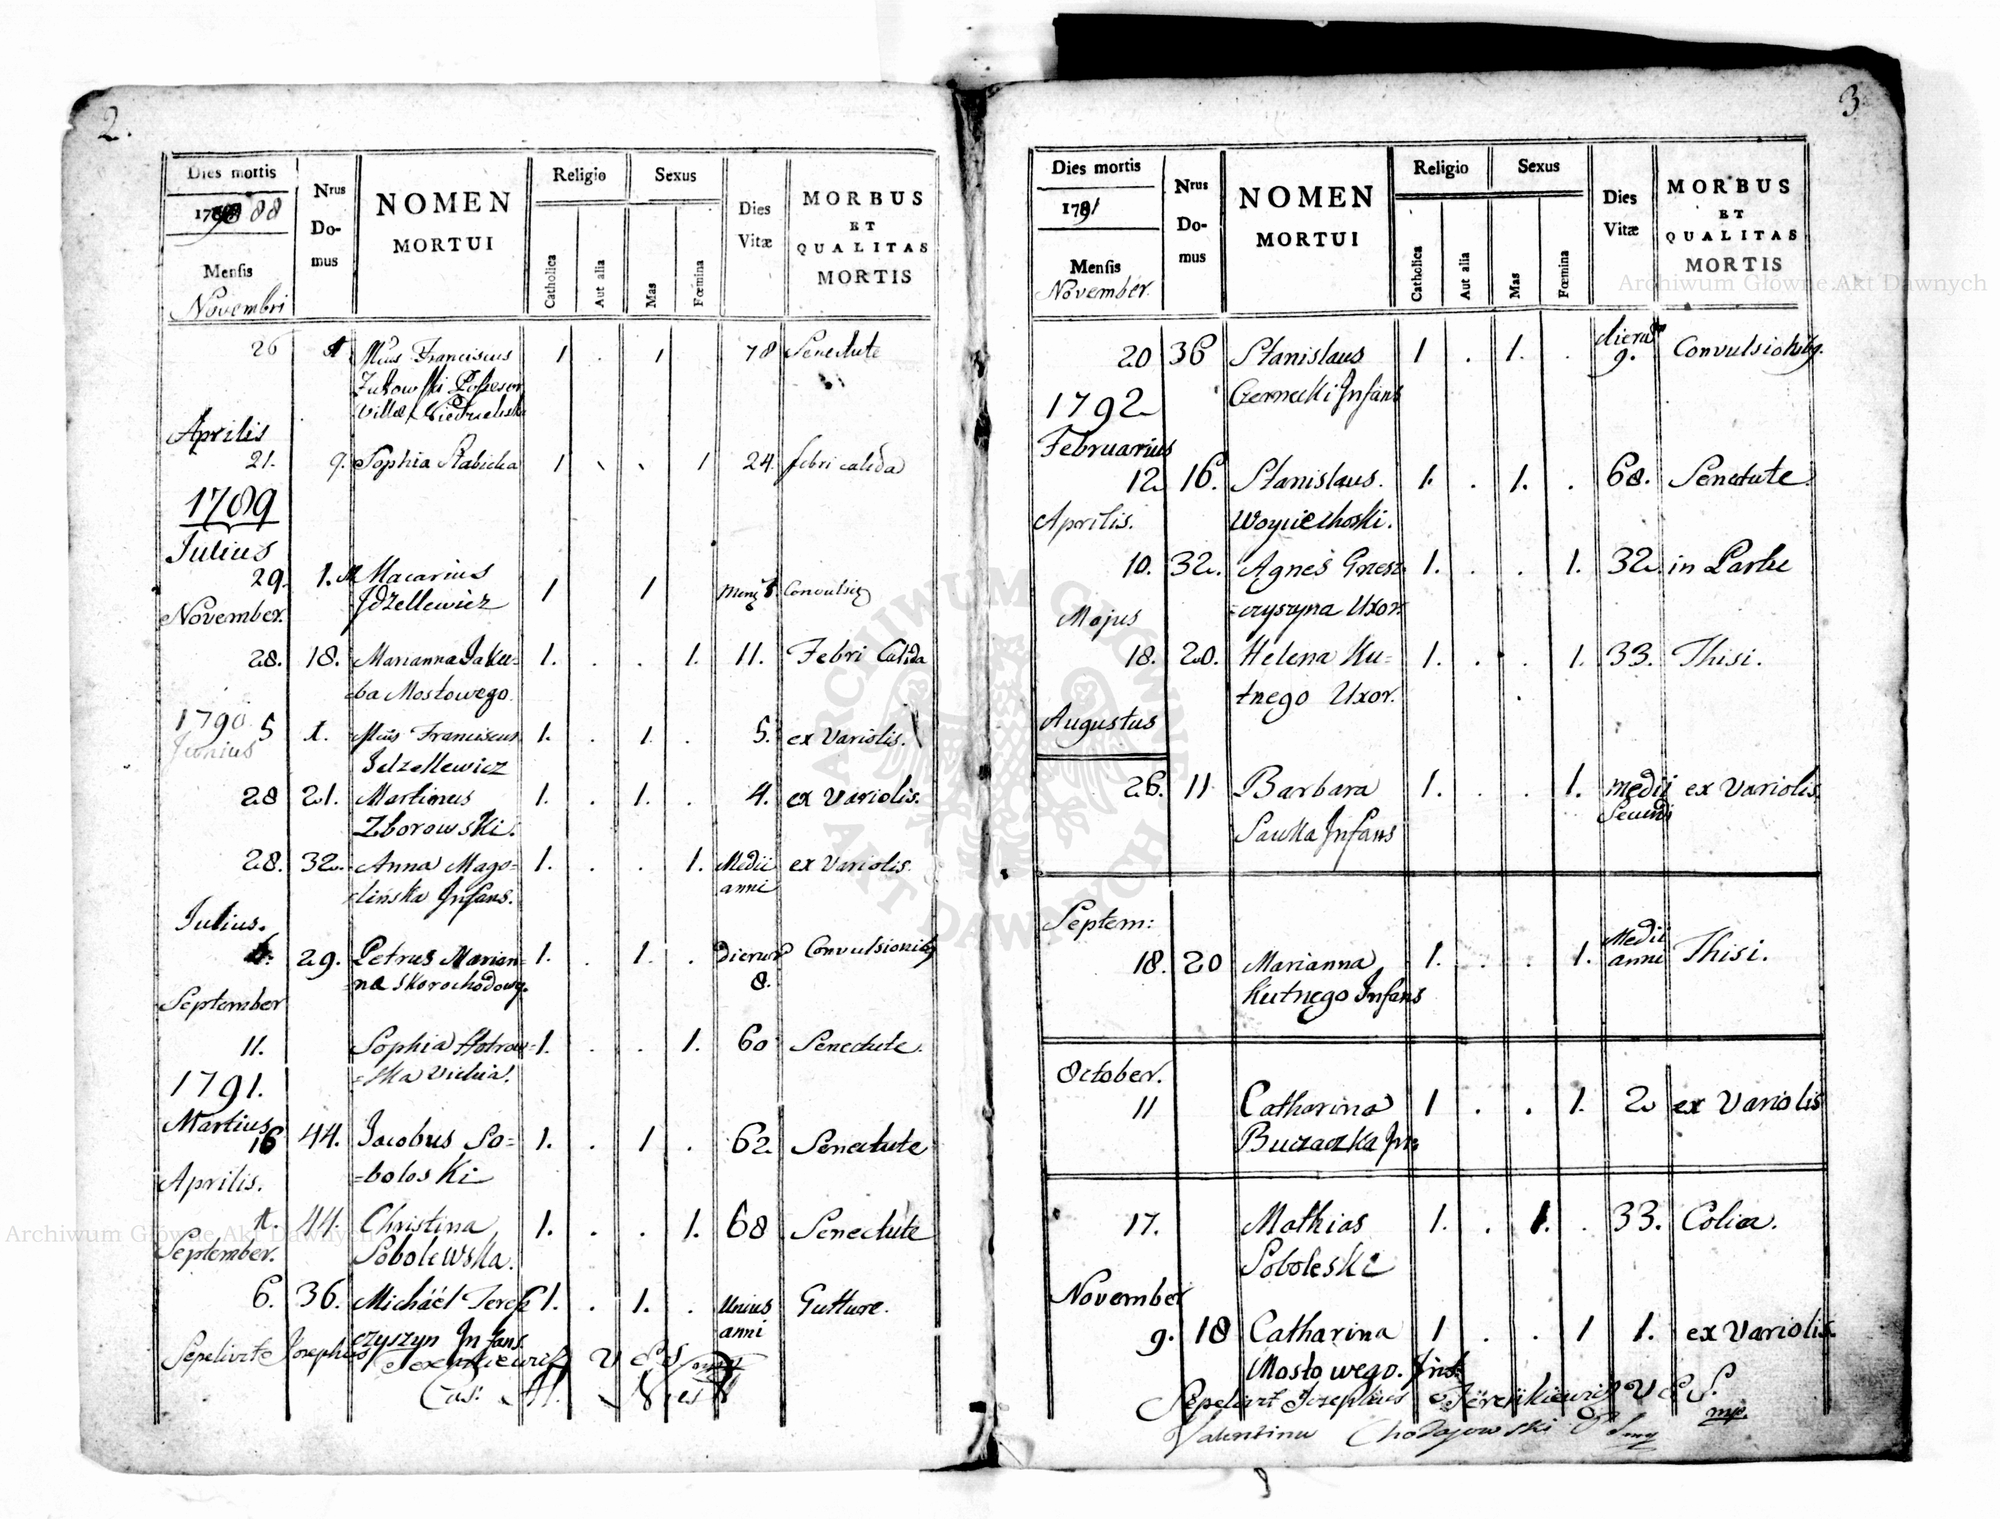 2.
Dies mortis
1788
Mensis
Novembri
Nrus Domus
NOMEN
MORTUI
Religio
Catholica
Aut alia
Sexus
Mas
Fœmina
Dies Vitæ
MORBUS
ET
QUALITAS
MORTIS
26 Franciscus 1 . 1 78 Senectute
Zukowski Possesor
Villæ
Aprilis
21. 9. Sophia Slabicka 1 1 24. febri calida
1789
Julius
29. 1. Macarius 1 1 Convulsi
Jdzellewicz
November.
28. 18. Marianna Jaku= 1. . . 1. 11. Febri Calida
=ba Mostowego.
1790
Junius
5 1. Franciscus 1. . 1. . 5. ex Variolis.
Jdzellewicz
28 21. Martinus 1. . 1. . 4. ex Variolis.
Zborowski.
28. 32. Anna Mago= 1. . . 1. Medii anni ex Variolis.
=linska Infans.
Julius.
29. Petrus Marian= 1. . 1. . Dierum 8. Convulsionib9
=na Skorochodowg.
September
11. Sophia Hotrow= 1. . . 1. 60 Senectute.
=ska
1791.
Martius
16 44. Jacobus So= 1. . 1 . 62. Senectute
=boloski
Aprilis.
1. 44. Christina 1. . . 1. 68 Senectute
Sobolewska.
September.
6. 36. Michaël 1. . 1. . Unius anni Gutture.
czyszyn Infans.
Sepelivit Josephus
3
Dies mortis
1791
Mensis
November.
Nrus Domus
NOMEN
MORTUI
Religio
Catholica
Aut alia
Sexus
Mas
Fœmina
Dies Vitæ
MORBUS
ET
QUALITAS
MORTIS
20 36 Stanislaus 1 . 1. . dierum 9. Convulsionib9.
Czernecki Infans
1792
Februarius
12 16. Stanislaus. 1. . 1. . 68. Senectute
Woyciechoski.
Aprilis.
10. 32. Agnes Gresz 1. . . 1. 32. in Partu
=czyszyna Uxor.
Majus
18. 20. Helena Ku= 1. . . 1. 33. Thisi.
tnego Uxor.
Augustus
26. 11 Barbara 1. . . 1. medii ex Variolis.
Infans
Septem:
18. 20 Marianna 1. . . 1. Medii anni Thisi.
Kutnego Infans
October.
11 Catharina 1 . . 1. 2 ex Variolis
Buczaczka
17. Mathias 1. . 1. . 33. Colica.
Soboleski
November
9. 18 Catharina 1 . . 1 1. ex Variolis.
Mostowego. Inf.
Sepelivit Josephus V C S. mp.
Valentinu Chodajowski
Archiwum Główne Akt Dawnych
Archiwum Główne Akt Dawnych
ARCHIWUM GŁÓWNE AKT DAWNYCH